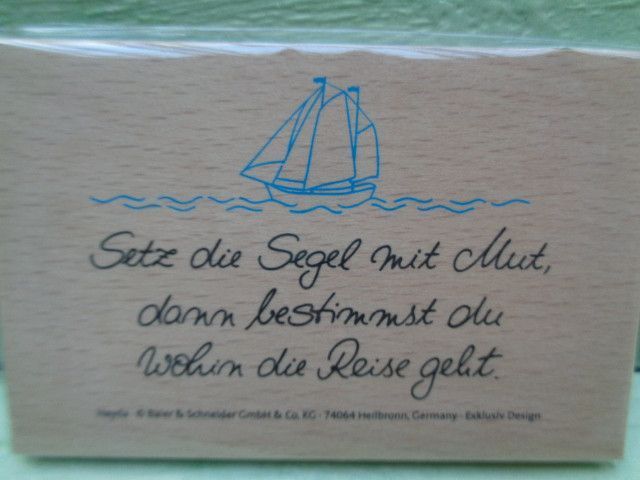 Setz die Segel mit Mut,
dann bestimmst du
wohin die Reise geht.
Heyda © Baier & Schneider GmbH & Co. KG · 74064 Heilbronn, Germany · Exklusiv Design